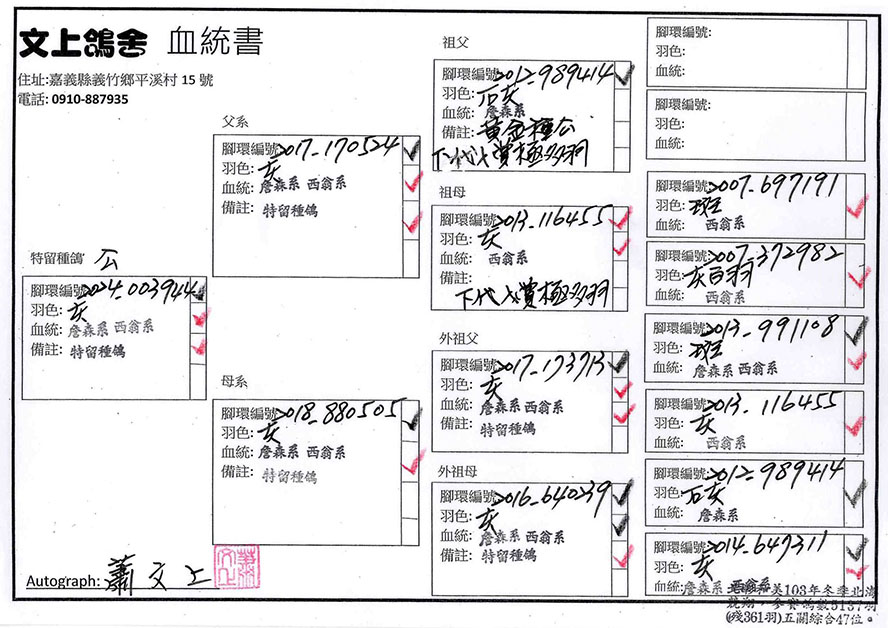 文上鴿舍 血統書
住址:嘉義縣義竹鄉平溪村 15 號
電話: 0910-887935
特留種鴿 公
腳環編號:2024-003944
羽色: 灰
血統: 詹森系 西翁系
備註: 特留種鴿
父系
腳環編號:2017-170524
羽色: 灰
血統: 詹森系 西翁系
備註: 特留種鴿
母系
腳環編號:2018-880505
羽色: 灰
血統: 詹森系 西翁系
備註: 特留種鴿
祖父
腳環編號:2012-989414
羽色: 石灰
血統: 詹森系
備註: 黃金種公
下代入賞極多羽
祖母
腳環編號:2013-116455
羽色: 灰
血統: 西翁系
備註:
下代入賞極多羽
外祖父
腳環編號:2017-173713
羽色: 灰
血統: 詹森系 西翁系
備註: 特留種鴿
外祖母
腳環編號:2016-640239
羽色: 灰
血統: 詹森系 西翁系
備註: 特留種鴿
腳環編號:
羽色:
血統:
腳環編號:
羽色:
血統:
腳環編號:2007-697191
羽色: 斑
血統: 西翁系
腳環編號:2007-372982
羽色: 灰白羽
血統: 西翁系
腳環編號:2013-991108
羽色: 斑
血統: 詹森系 西翁系
腳環編號:2013-116455
羽色: 灰
血統: 西翁系
腳環編號:2012-989414
羽色: 石灰
血統: 詹森系
腳環編號:2014-647311
羽色: 灰
血統: 詹森系 西翁系
美103年冬季北海
競翔,參賽鴿數5137羽
(殘361羽)五關綜合47位。
Autograph: 蕭文上